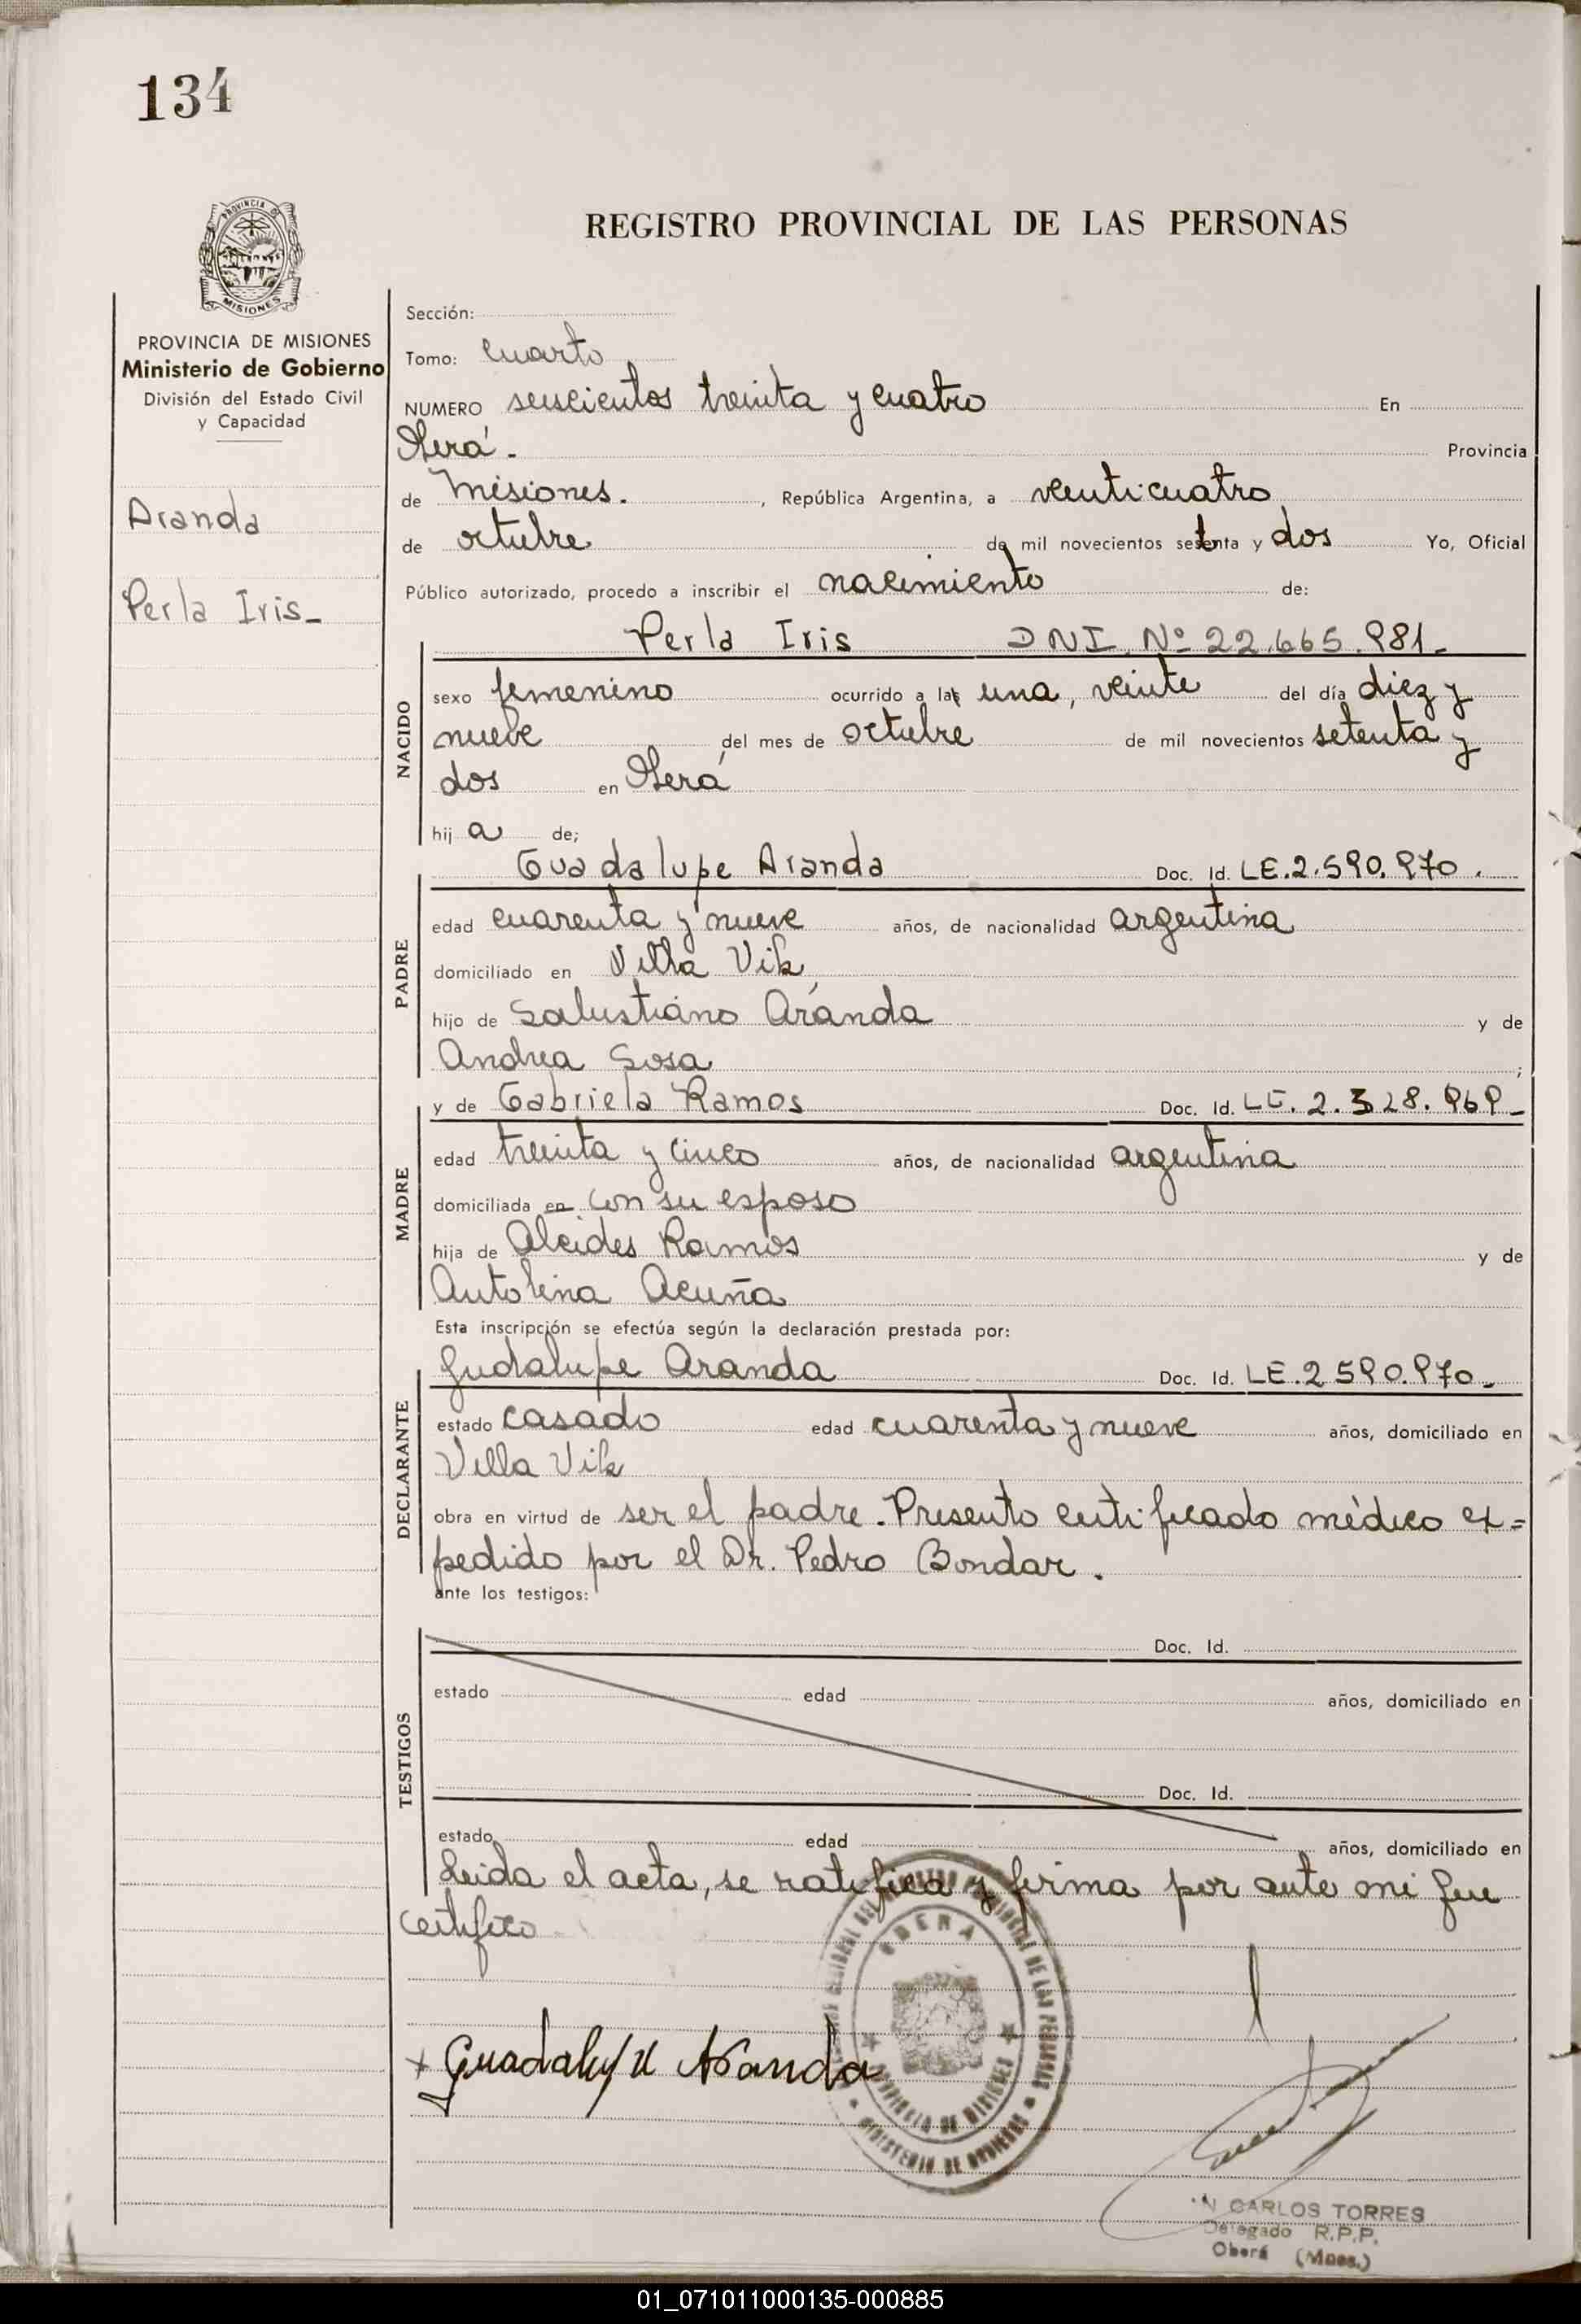 134
PROVINCIA DE
MISIONES
REGISTRO PROVINCIAL DE LAS PERSONAS
PROVINCIA DE MISIONES
Ministerio de Gobierno
División del Estado Civil
y Capacidad
Aranda
Perla Iris -
Sección:
Tomo: Cuarto
NUMERO seiscientos treinta y cuatro En
Oberá. Provincia
de Misiones. , República Argentina, a veinticuatro
de octubre de mil novecientos setenta y dos Yo, Oficial
Público autorizado, procedo a inscribir el nacimiento de:
NACIDO
Perla Iris DNI. Nº 22.665.981.-
sexo femenino ocurrido a las una, veinte del día diez y
nueve del mes de octubre de mil novecientos setenta y
dos en Oberá
hij a de;
PADRE
Guadalupe Aranda Doc. Id. LE.2.590.970.
edad cuarenta y nueve años, de nacionalidad argentina
domiciliado en Villa Vik
hijo de Salustiano Aranda y de
Andrea Sosa ;
y de Gabriela Ramos Doc. Id. LE. 2.328.969-
MADRE
edad treinta y cinco años, de nacionalidad argentina
domiciliada en con su esposo
hija de Alcides Ramos y de
Antolina Acuña
Esta inscripción se efectúa según la declaración prestada por:
DECLARANTE
Gudalupe Aranda Doc. Id. LE.2590.970.-
estado casado edad cuarenta y nueve años, domiciliado en
Villa Vik
obra en virtud de ser el padre. Presento certificado médico ex=
pedido por el Dr. Pedro Bondar.
ante los testigos:
TESTIGOS
Doc. Id.
estado edad años, domiciliado en
Doc. Id.
estado edad años, domiciliado en
Leida el acta, se ratifica y firma por ante mi que
certifico
OBERA
PROVINCIA DE MISIONES
MINISTERIO DE GOBIERNO
DE LAS PERSONAS
+ Guadalupe Aranda
CARLOS TORRES
Delegado R.P.P.
Oberá (Mnes.)
01_071011000135-000885